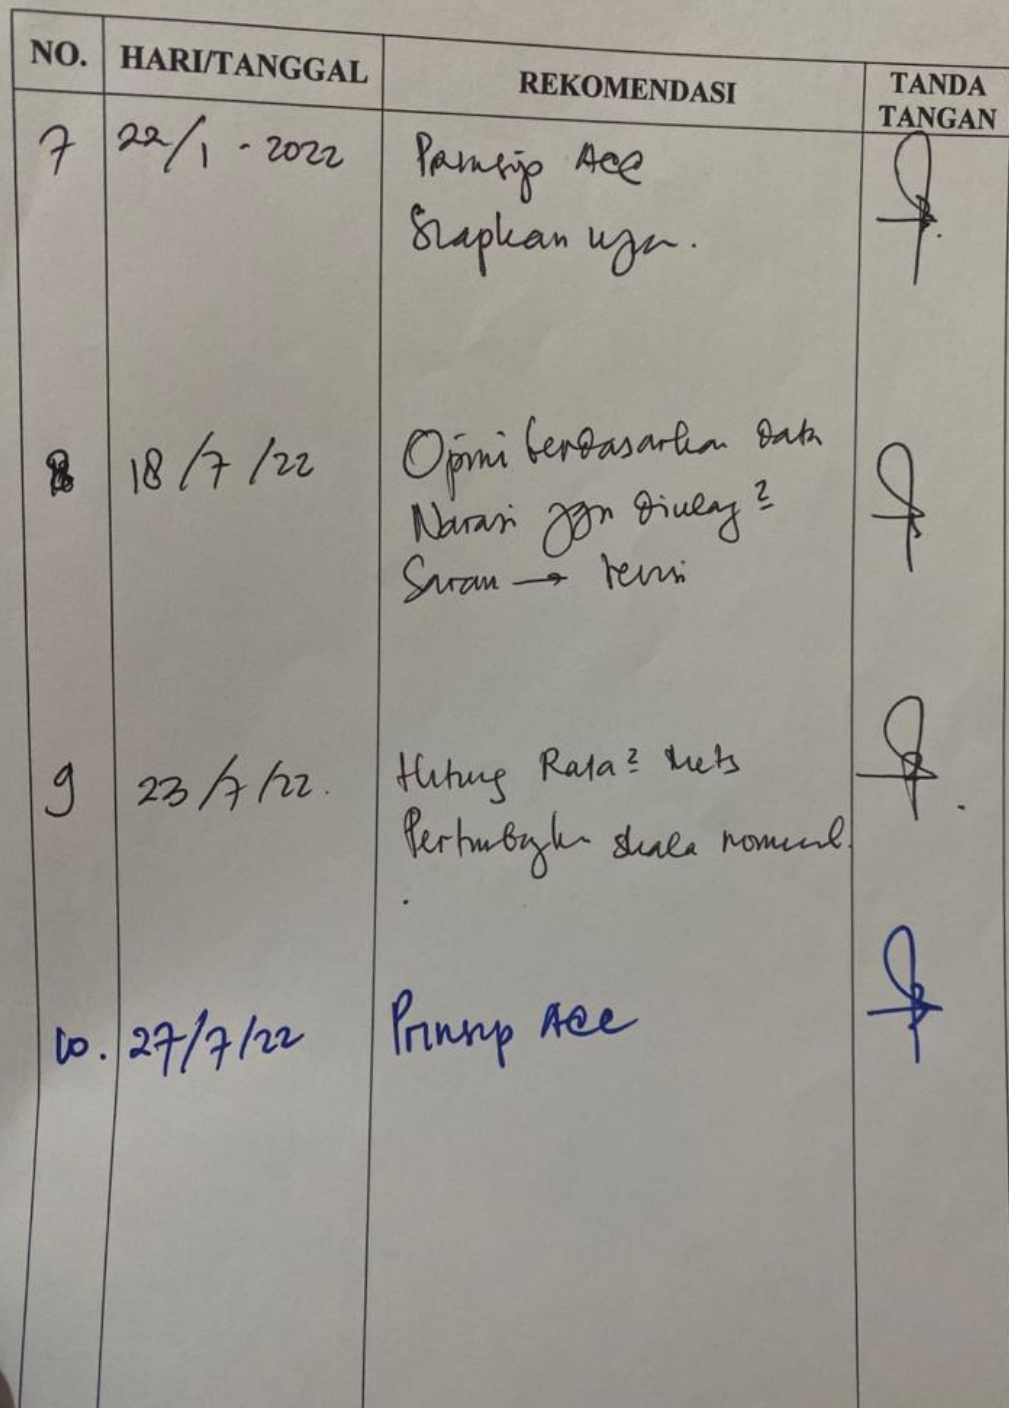 NO. HARI/TANGGAL REKOMENDASI TANDA TANGAN
7 22/1 - 2022 Prinsip Acc
Siapkan ujn.
8 18/7/22 Opini berdasarkan data
Narasi jgn diulag2
Saran → revisi
9 23/7/22. Hitung Rata2
skala nominal.
10. 27/7/22 Prinsip Acc